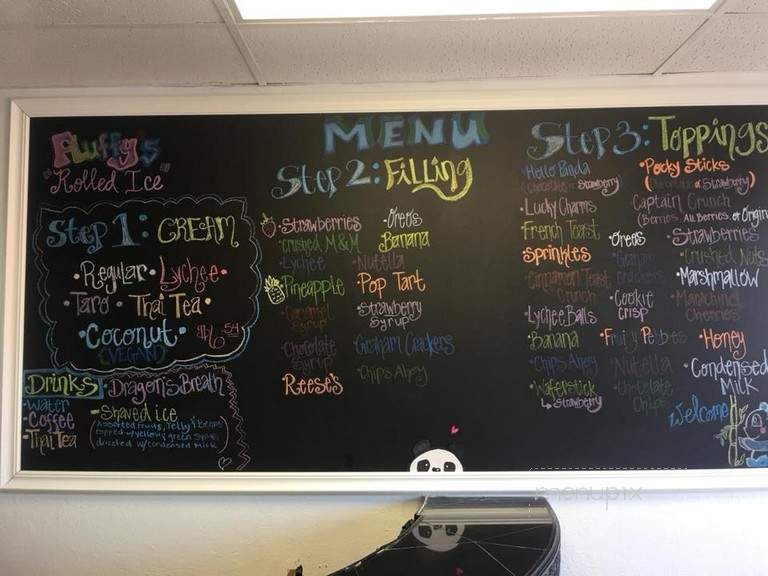 Fluffy's
"Rolled Ice"
MENU
Step 1: CREAM
•Regular •Lychee•
•Taro •Thai Tea•
•Coconut•
(VEGAN)
$6.54
DRINKS
-Water
-Coffee
-Thai Tea
•Dragon's Breath
-Shaved ice
(Assorted fruits, Jelly & Beans
topped w/yellow, green syrup,
drizzled w/condensed Milk)
Step 2: Filling
•Strawberries
•Crushed M&M
•Lychee
•Pineapple
•Caramel
Syrup
•Chocolate
Syrup
•Reese's
•Oreos
•Banana
•Nutella
•Pop Tart
•Strawberry
Syrup
•Graham Crackers
•Chips Ahoy
Step 3: Toppings
•Hello Panda
(Chocolate or Strawberry)
•Lucky Charms
•French Toast
•Sprinkles
•Cinnamon Toast
Crunch
•Lychee Balls
•Banana
•Chips Ahoy
•Waferstick
↳Strawberry
•Oreos
•Graham
Crackers
•Cookie
Crisp
•Fruity Pebbles
•Nutella
•Chocolate
Chips
•Pocky Sticks
(Chocolate or Strawberry)
Captain Crunch
(Berries, All Berries, or Origin
•Strawberries
•Crushed Nuts
•Marshmallow
•Maraschino
Cherries
•Honey
•Condensed
Milk
Welcome
menupix